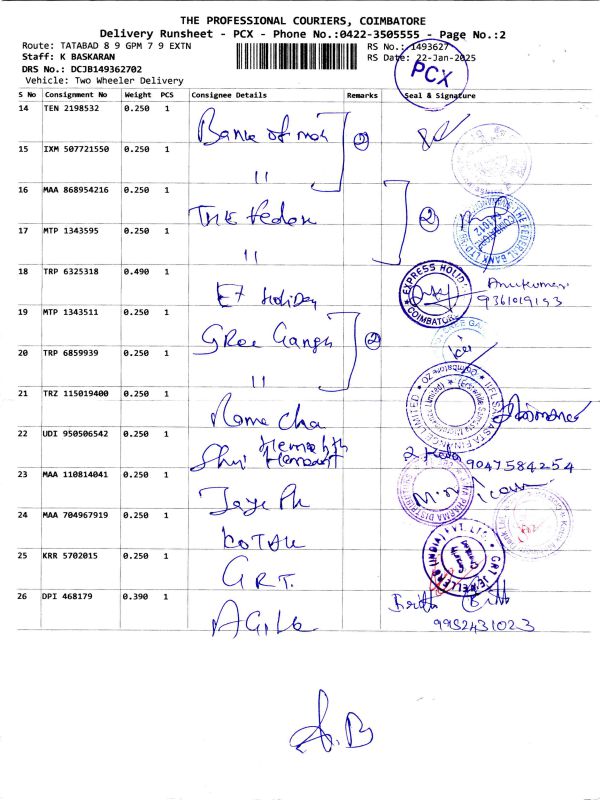 THE PROFESSIONAL COURIERS, COIMBATORE
Delivery Runsheet - PCX - Phone No.:0422-3505555 - Page No.:2
Route: TATABAD 8 9 GPM 7 9 EXTN
RS No.: 1493627
Staff: K BASKARAN
RS Date: 22-Jan-2025
DRS No.: DCJB149362702
PCX
Vehicle: Two Wheeler Delivery
S No Consignment No Weight PCS Consignee Details Remarks Seal & Signature
14 TEN 2198532 0.250 1
Bank of
2
15 IXM 507721550 0.250 1
"
16 MAA 868954216 0.250 1
THE Feder
2
THE FEDERAL BANK LTD
17 MTP 1343595 0.250 1
"
18 TRP 6325318 0.490 1
EX Holiday
EXPRESS HOLIDAY
COIMBATORE
9361019193
19 MTP 1343511 0.250 1
GRee Ganga
2
20 TRP 6859939 0.250 1
"
21 TRZ 115019400 0.250 1
Rama Cha
IIFL SAMASTA FINANCE LIMITED
22 UDI 950506542 0.250 1
Shri Hemant
9047584254
23 MAA 110814041 0.250 1
Jaya Ph
PHARMA DISTRIBUTORS
24 MAA 704967919 0.250 1
KOTAK
25 KRR 5702015 0.250 1
G.R.T.
GRT JEWELLERS (INDIA) PVT. LTD.
26 DPI 468179 0.390 1
AGILE
9952431023
A.B